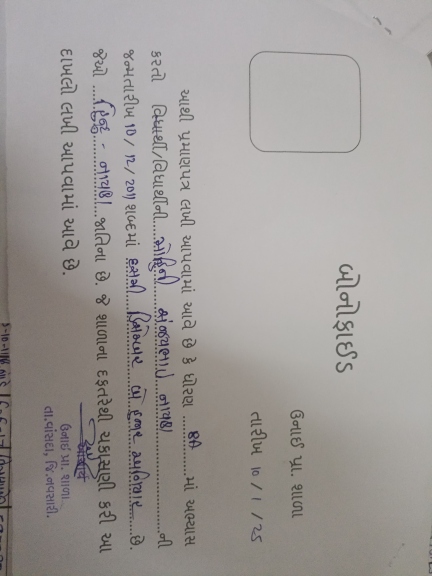 બોનોફાઈડ
ઉનાઈ પ્રા. શાળા
તારીખ 10 / 1 / 25
આથી પ્રમાણપત્ર લખી આપવામાં આવે છે કે ધોરણ ... 8 ... માં અભ્યાસ
કરતો વિદ્યાર્થી/વિદ્યાર્થીની ... સંજયભાઈ નાયકા ... ની
જન્મતારીખ 10 / 12 / 2011 શબ્દમાં દસમી ડિસેમ્બર બે હજાર અગિયાર ... છે.
જેઓ ... હિન્દુ - નાયકા ... જાતિના છે. જે શાળાના દફતરેથી ચકાસણી કરી આ
દાખલો લખી આપવામાં આવે છે.
ઉનાઈ પ્રા. શાળા
તા.વાંસદા, જિ.નવસારી.